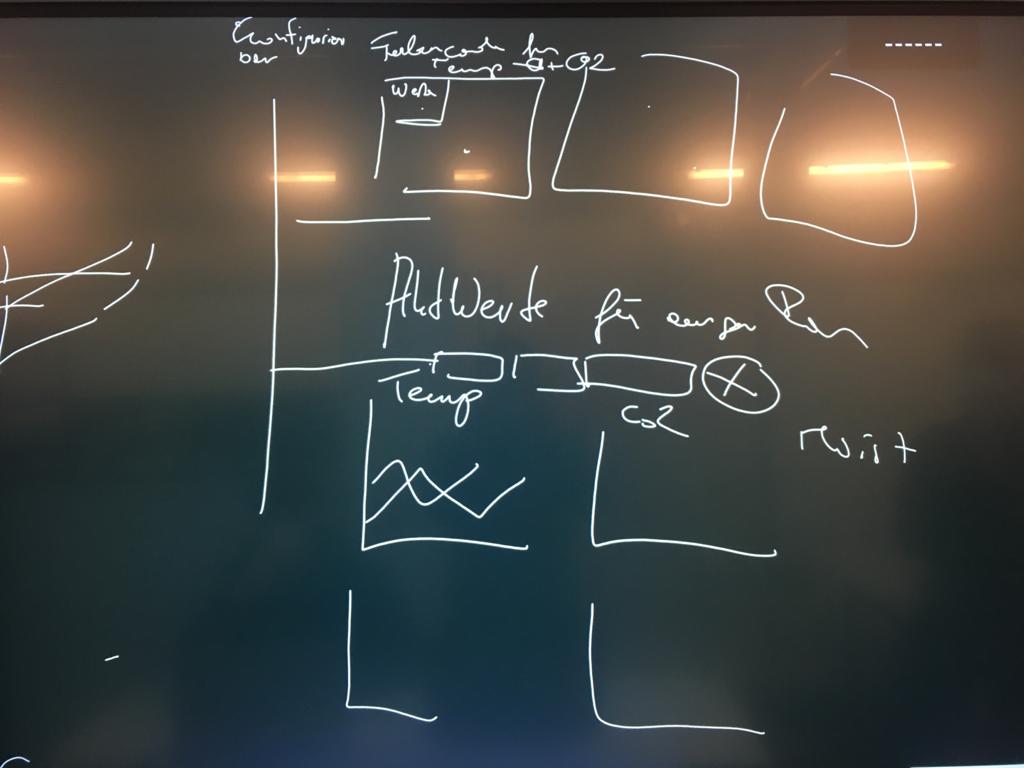 Configurier
bar
Farbencode für
Temp + CO2
Werte
AktWerte für einen
Temp
CO2